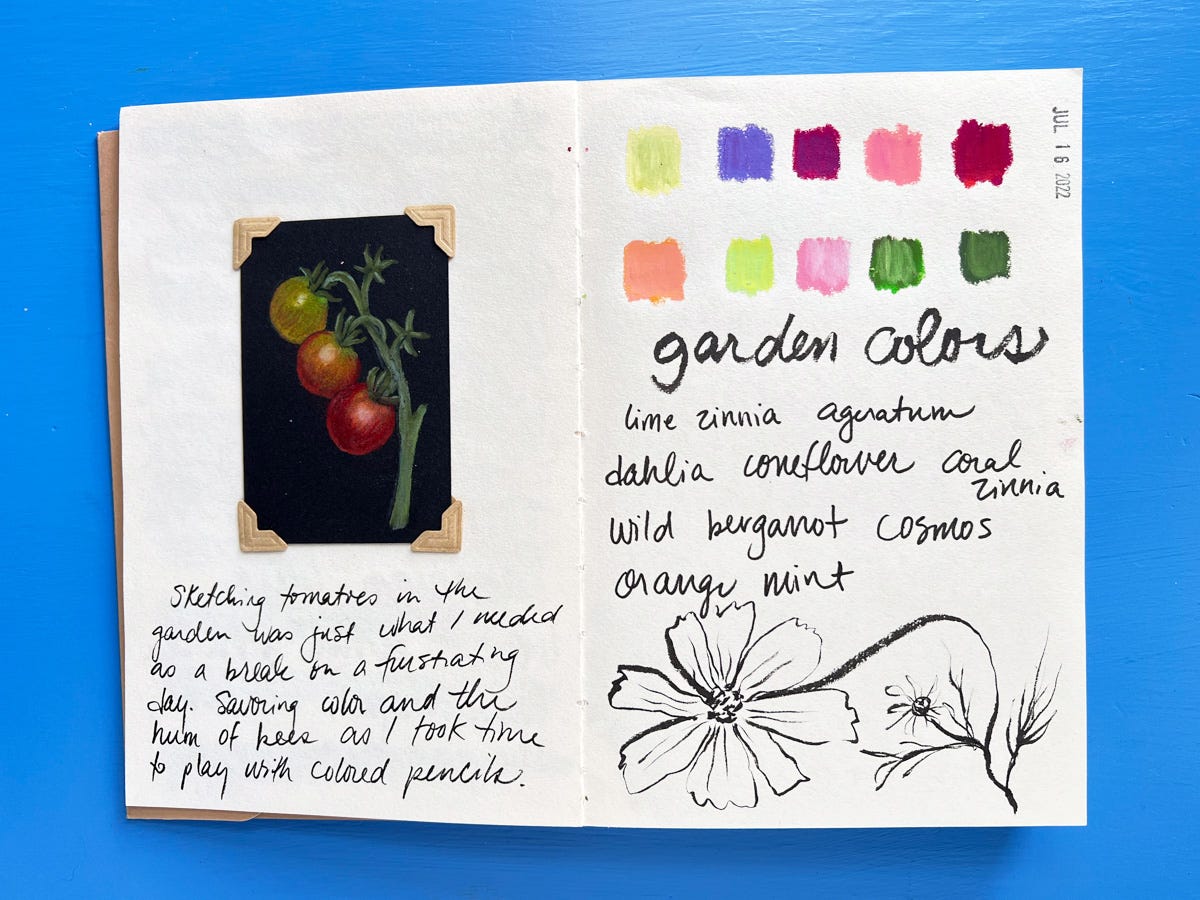 Sketching tomatoes in the
garden was just what I needed
as a break on a frustrating
day. Savoring color and the
hum of bees as I took time
to play with colored pencils.
JUL 16 2022
garden colors
lime zinnia ageratum
dahlia coneflower coral
zinnia
wild bergamot cosmos
orange mint